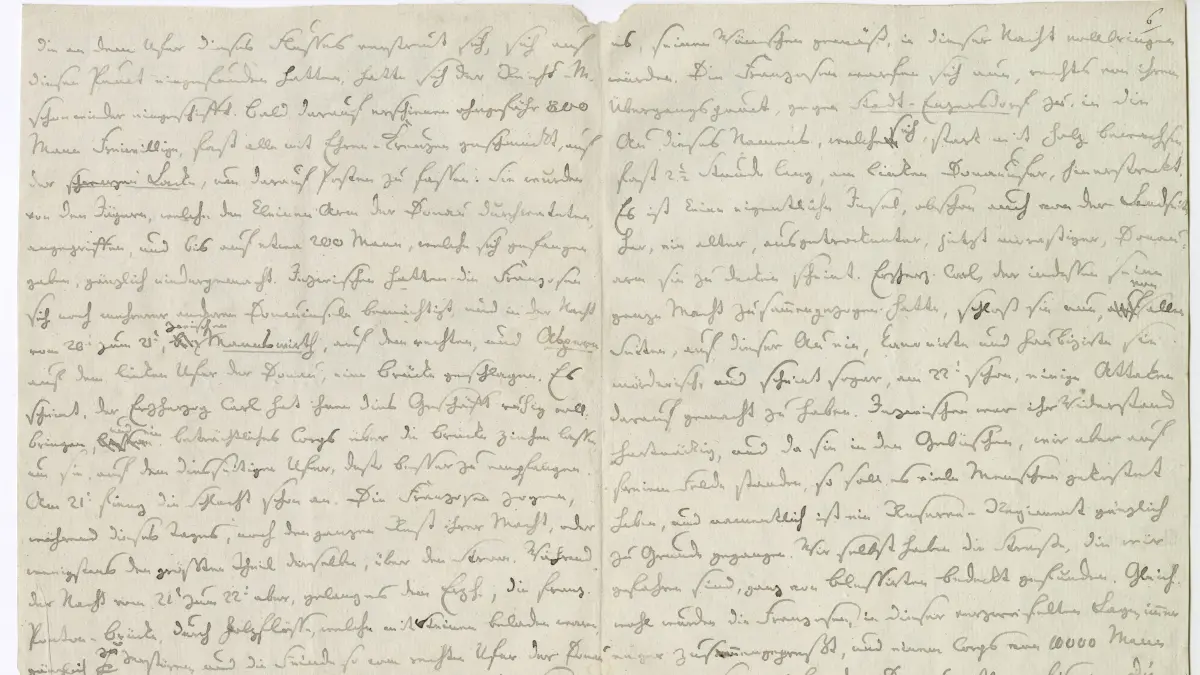 die an dem Ufer dieses Flusses zerstreut sich, sich auf
diesen Punct eingefunden hatten, hatte sich der
eingeschifft. Bald darauf erschienen ohngefähr 800
Mann Freiwillige, fast alle mit Ehren-Kreuzen geschmückt, auf
der schwarzen Lacke, um darauf Posten zu fassen: Sie wurden
von den Jägern, welche den kleinen Arm der Donau durchwateten,
angegriffen, und bis auf etwa 200 Mann, welche sich gefangen
gaben, gänzlich niedergemacht. Inzwischen hatten die Franzosen
sich noch mehrerer anderen Donauinseln bemächtigt, und in der Nacht
vom 20t zum 21t, zwischen Mannswörth, auf dem rechten, und Aspern
auf dem linken Ufer der Donau, eine Brücke geschlagen. Es
scheint, der Erzherzog Carl hat ihnen dies Geschäft ruhig voll-
bringen, und ein beträchtliches Corps über die Brücke ziehen lassen
um sie, auf dem diesseitigen Ufer, desto besser zu empfangen.
Am 21t fieng die Schlacht schon an. Die Franzosen zogen,
während dieses Tages, noch den ganzen Rest ihrer Macht, oder
wenigstens den größten Theil derselben, über den Strom. Während
der Nacht vom 21t zum 22t aber, gelang es dem Erzh., die franz.
Ponton-Brücke, durch Holzflösse, welche mit Steinen beladen waren
gänzlich zu zerstören, und die Feinde so vom rechten Ufer der Donau
6
es, seinen Wünschen gemäß, in dieser Nacht vollbringen
würden. Die Franzosen warfen sich nun, rechts von ihrem
Übergangspunct, gegen Stadt-Enzersdorf zu, in die
Au dieses Namens, welche sich, stark mit Holz bewachsen,
fast 2½ Stunde lang, am linken Donauufer, hinerstreckt.
Es ist keine eigentliche Insel, obschon auch von der Landseite
her, ein alter, ausgetrockneter, jetzt morastiger, Donau-
arm sie zu decken scheint. Erzherz. Carl, der indessen seine
ganze Macht zusammengezogen hatte, schloß sie nun, von allen
Seiten, auf dieser Au ein, kanonirte und haubizirte sie
mörderisch, und scheint sogar, am 22t schon, einige Attaken
darauf gemacht zu haben. Inzwischen war ihr Widerstand
hartnäckig, und da sie in den Gebüschen, wir aber auf
freiem Felde standen, so soll es viele Menschen gekostet
haben, und namentlich ist ein Husaren-Regiment gänzlich
zu Grunde gegangen. Wir selbst haben die Straße, die wir
gefahren sind, ganz von Blessirten bedeckt gefunden. Gleich-
wohl wurden die Franzosen, in dieser verzweifelten Lage, immer
enger zusammengepreßt, und einem Corps von 10000 Mann